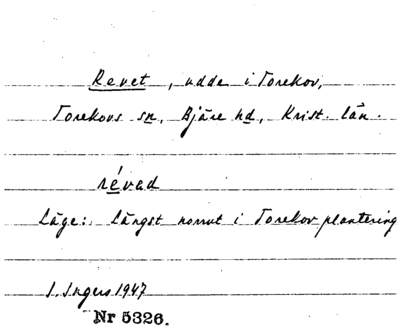 Revet, udde i Torekov,
Torekovs sn, Bjäre hd, Krist. län.
révad
Läge: Längst norrut i Torekov plantering
I. Ingers 1947
Nr 5326.